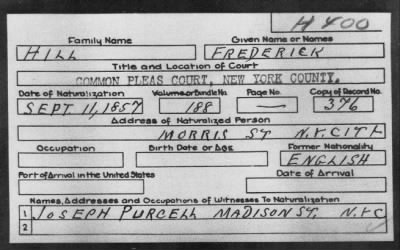 H 400
Family Name Given Name or Names
HILL FREDERICK
Title and Location of Court
COMMON PLEAS COURT, NEW YORK COUNTY.
Date of Naturalization Volume or Bundle No. Page No. Copy of Record No.
SEPT 11, 1857 188 — 376
Address of Naturalized Person
MORRIS ST N.Y. CITY
Occupation Birth Date or Age Former Nationality
ENGLISH
Port of Arrival in the United States Date of Arrival
Names, Addresses and Occupations of Witnesses To Naturalization
1 JOSEPH PURCELL MADISON ST. NYC
2